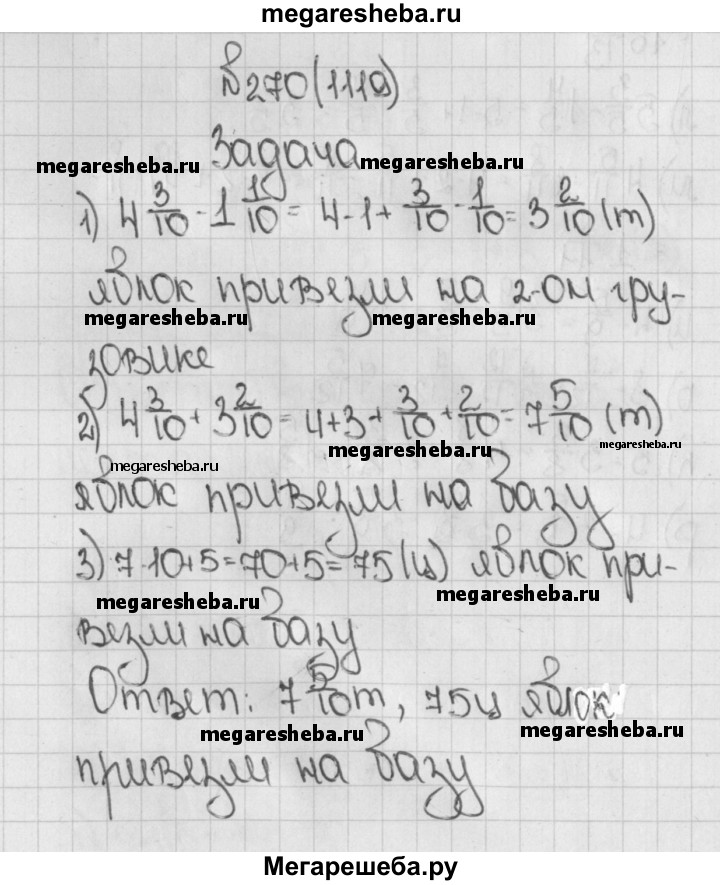 megaresheba.ru
№270(1119)
Задача
megaresheba.ru megaresheba.ru
1) 4 3/10 - 1 1/10 = 4-1+ 3/10 - 1/10 = 3 2/10 (т)
яблок привезли на 2-ом гру-
megaresheba.ru megaresheba.ru
зовике
2) 4 3/10 + 3 2/10 = 4+3+ 3/10 + 2/10 = 7 5/10 (т)
megaresheba.ru
megaresheba.ru
megaresheba.ru
яблок привезли на базу
3) 7·10+5=70+5=75(ц) яблок при-
megaresheba.ru megaresheba.ru
везли на базу
Ответ: 7 5/10 т, 75ц яблок
megaresheba.ru megaresheba.ru
привезли на базу
Мегарешеба.ру